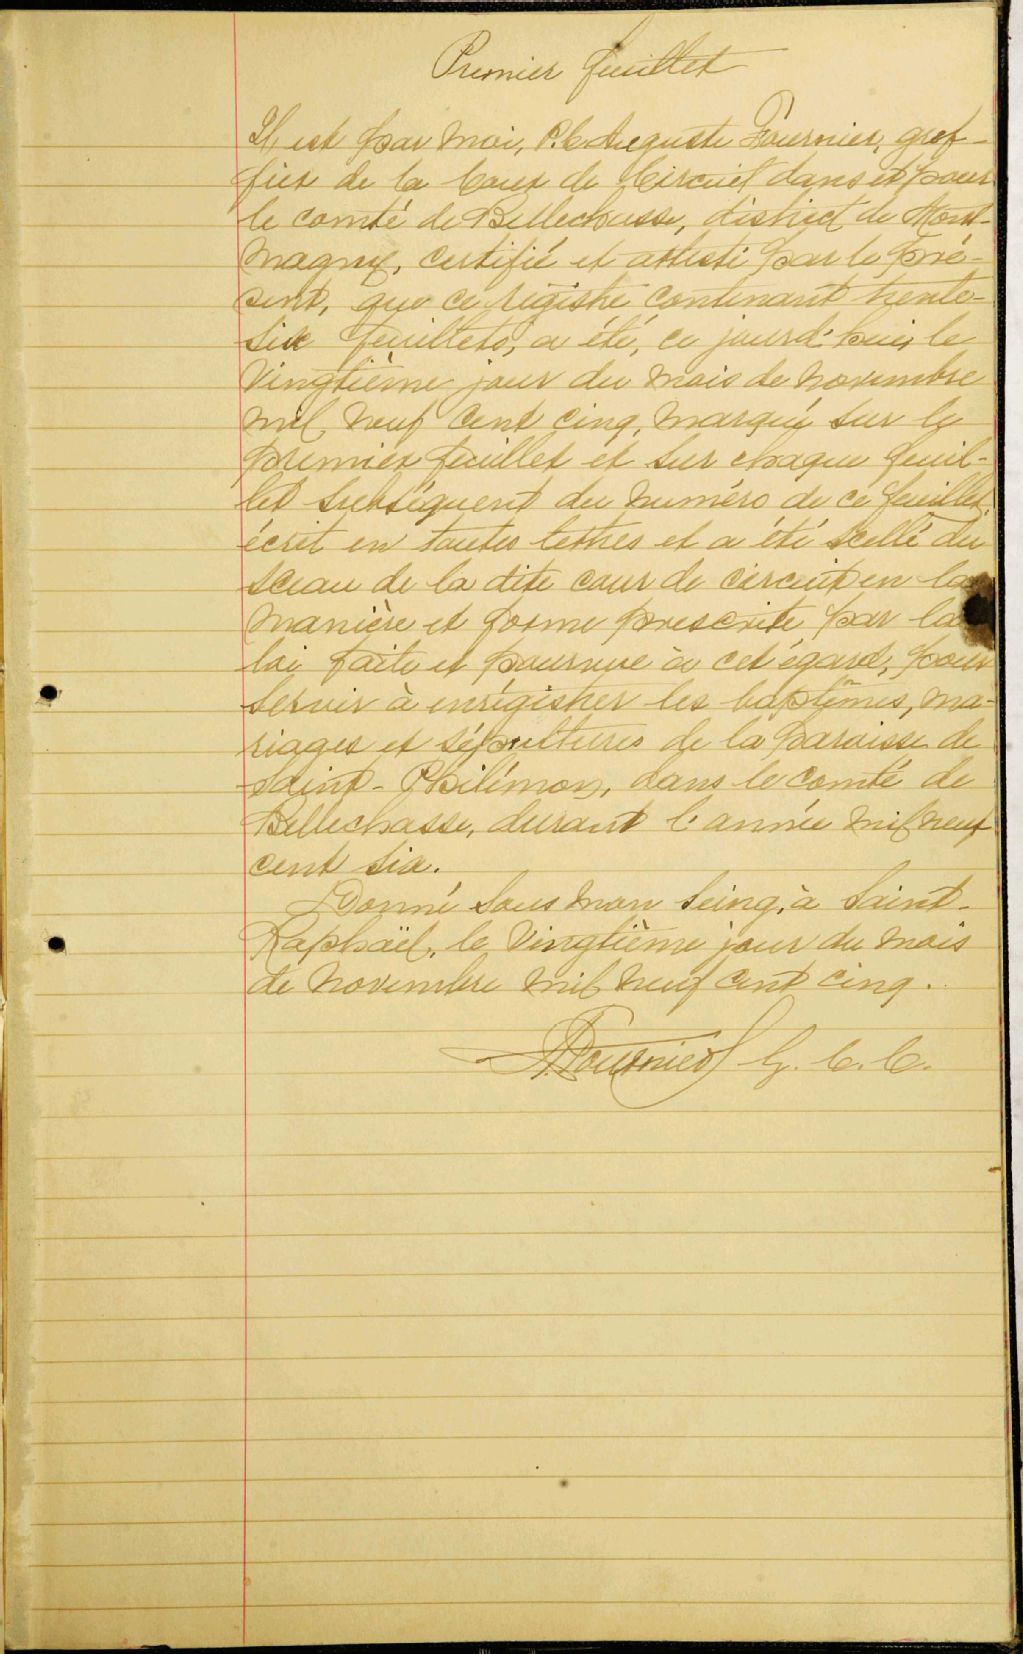 Premier feuillet
Il est par moi, Auguste Fournier, gref-
fier de la Cour de Circuit dans et pour
le comté de Bellechasse, district de Mont-
magny, certifié et attesté par le pré-
sent, que ce régistre contenant trente-
six feuillets, a été, ce jourd'hui le
vingtième jour du mois de novembre
mil neuf cent cinq, marqué sur le
premier feuillet et sur chaque feuil-
let subséquent du numéro de ce feuillet,
écrit en toutes lettres et a été scellé du
sceau de la dite cour de circuit en la
manière et forme prescrite par la
loi faite et pourvue à cet égard, pour
servir à enrégistrer les baptêmes, ma-
riages et sépultures de la paroisse de
Saint-Philémon, dans le comté de
Bellechasse, durant l'année mil neuf
cent six.
Donné sous mon seing, à Saint-
Raphaël, le vingtième jour du mois
de novembre mil neuf cent cinq.
A. Fournier G. C. C.